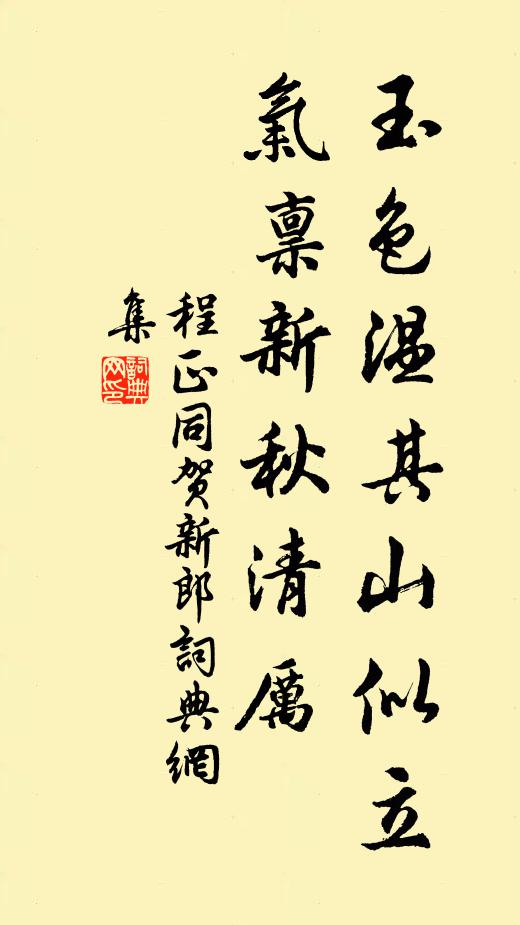 玉色温其山似立
氣稟新秋清厲
程正同贺新郎詞典網
集
詞典
网印